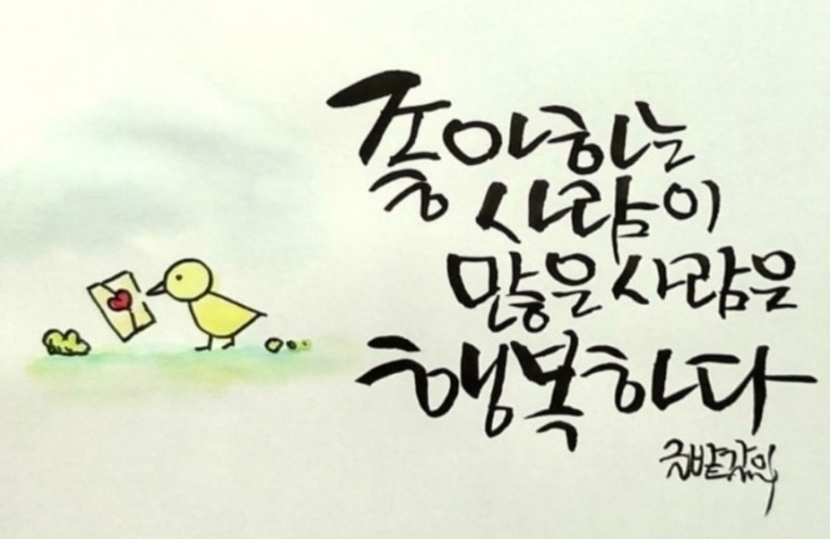 좋아하는
사람이
많은 사람은
행복하다